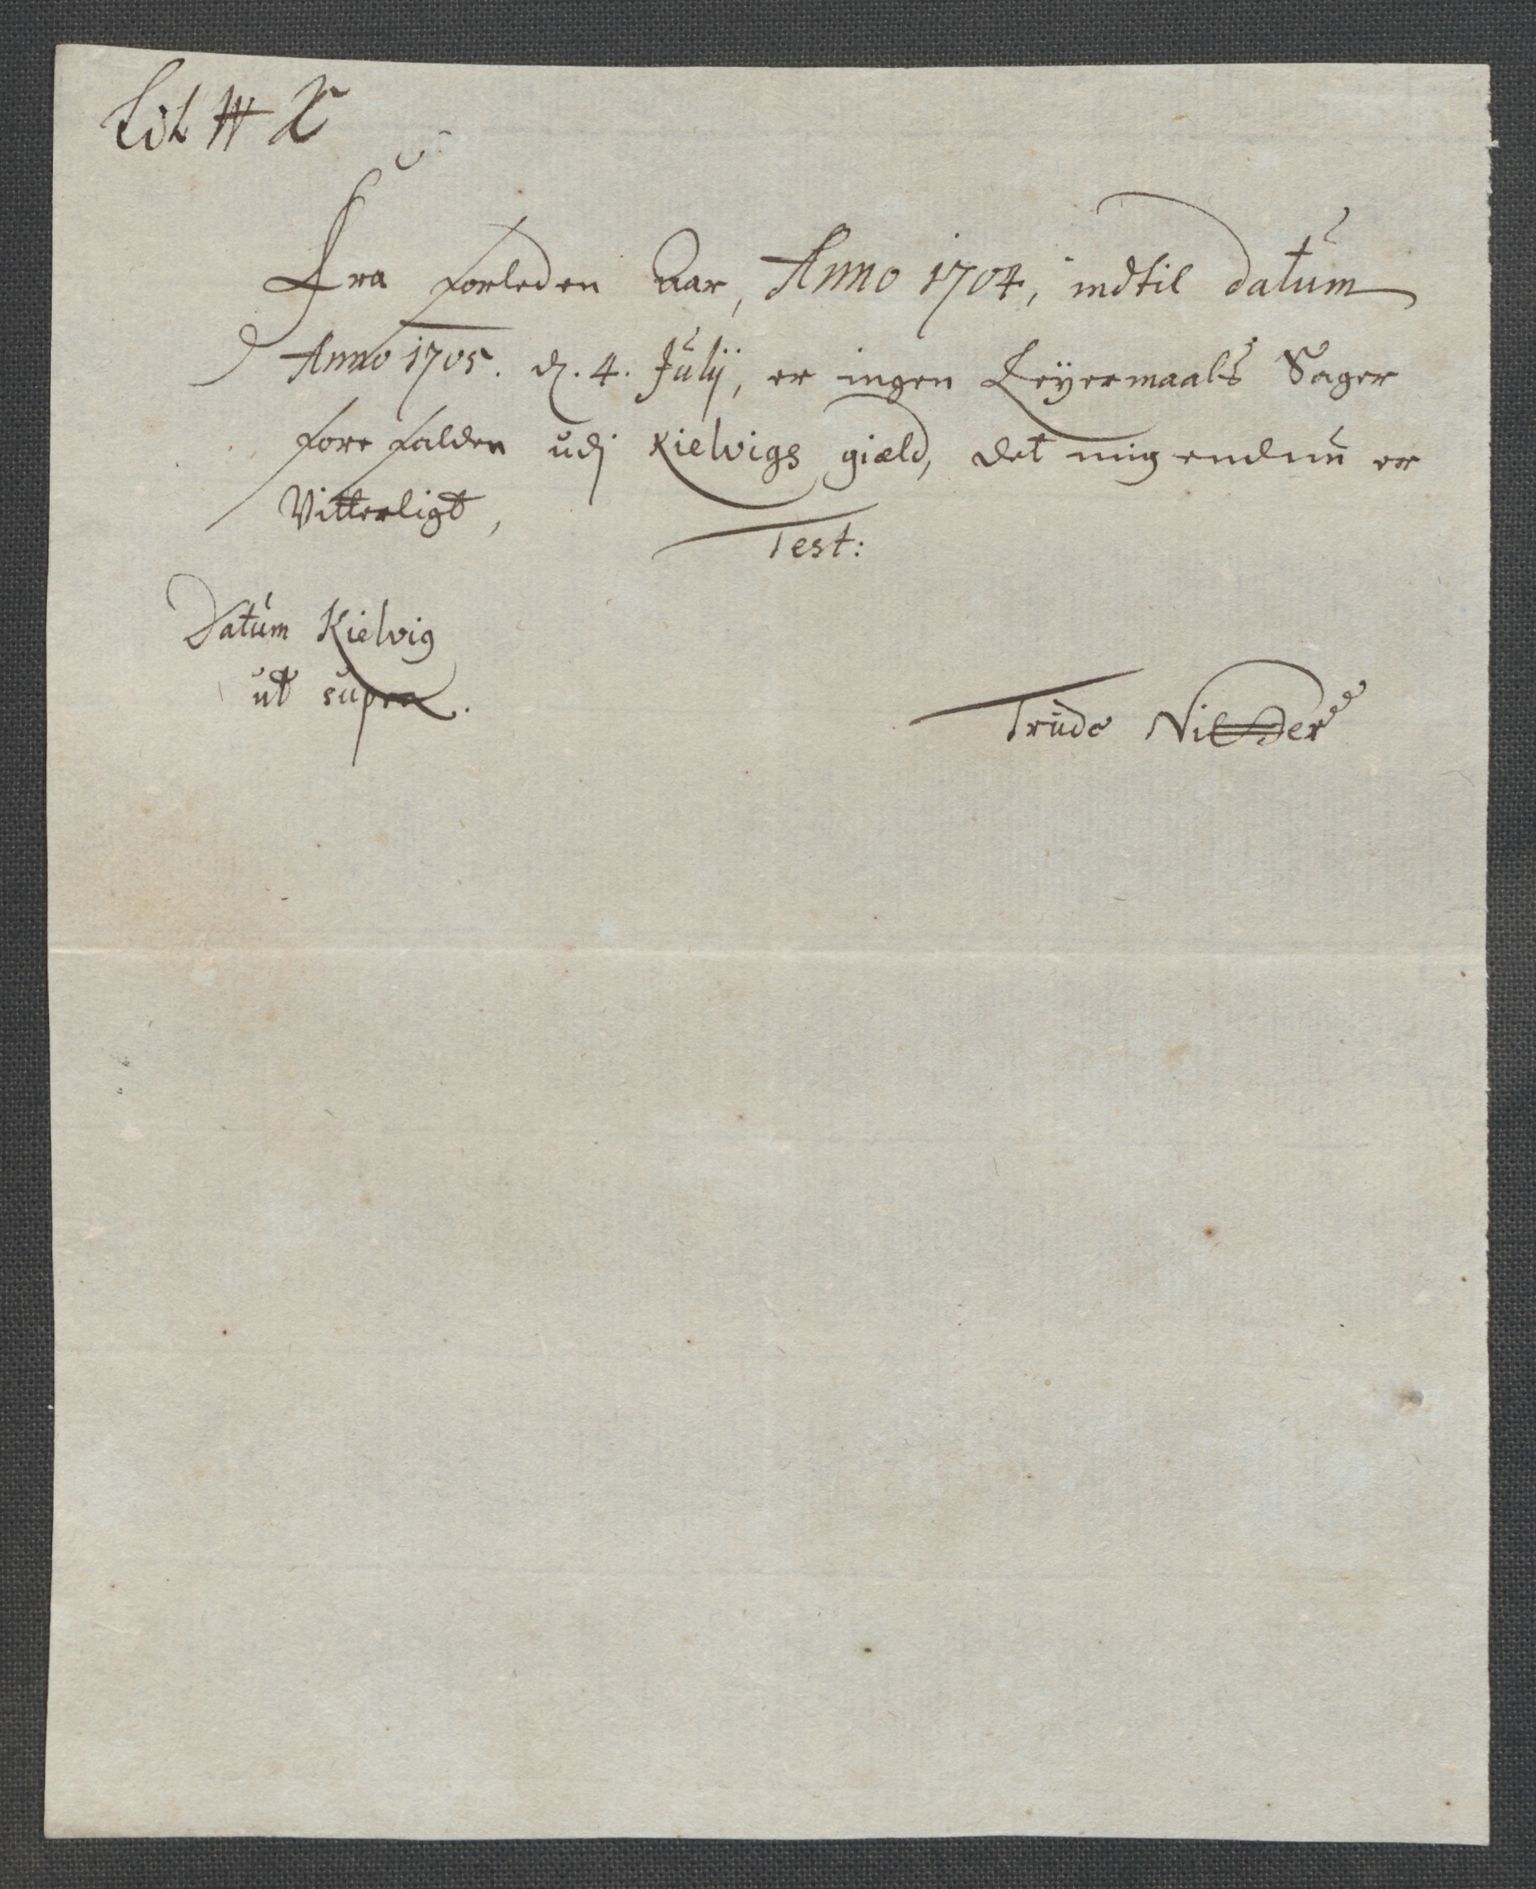 Lit W X
Fra forleden Aar, Anno 1704, indtil datum
Anno 1705. d. 4. Julij, er ingen Leÿermaals Sager
forefalden udj Kielvigs gield, det mig endnu er
Vitterligt,
Test:
Datum Kielvig
ut supra.
Trude